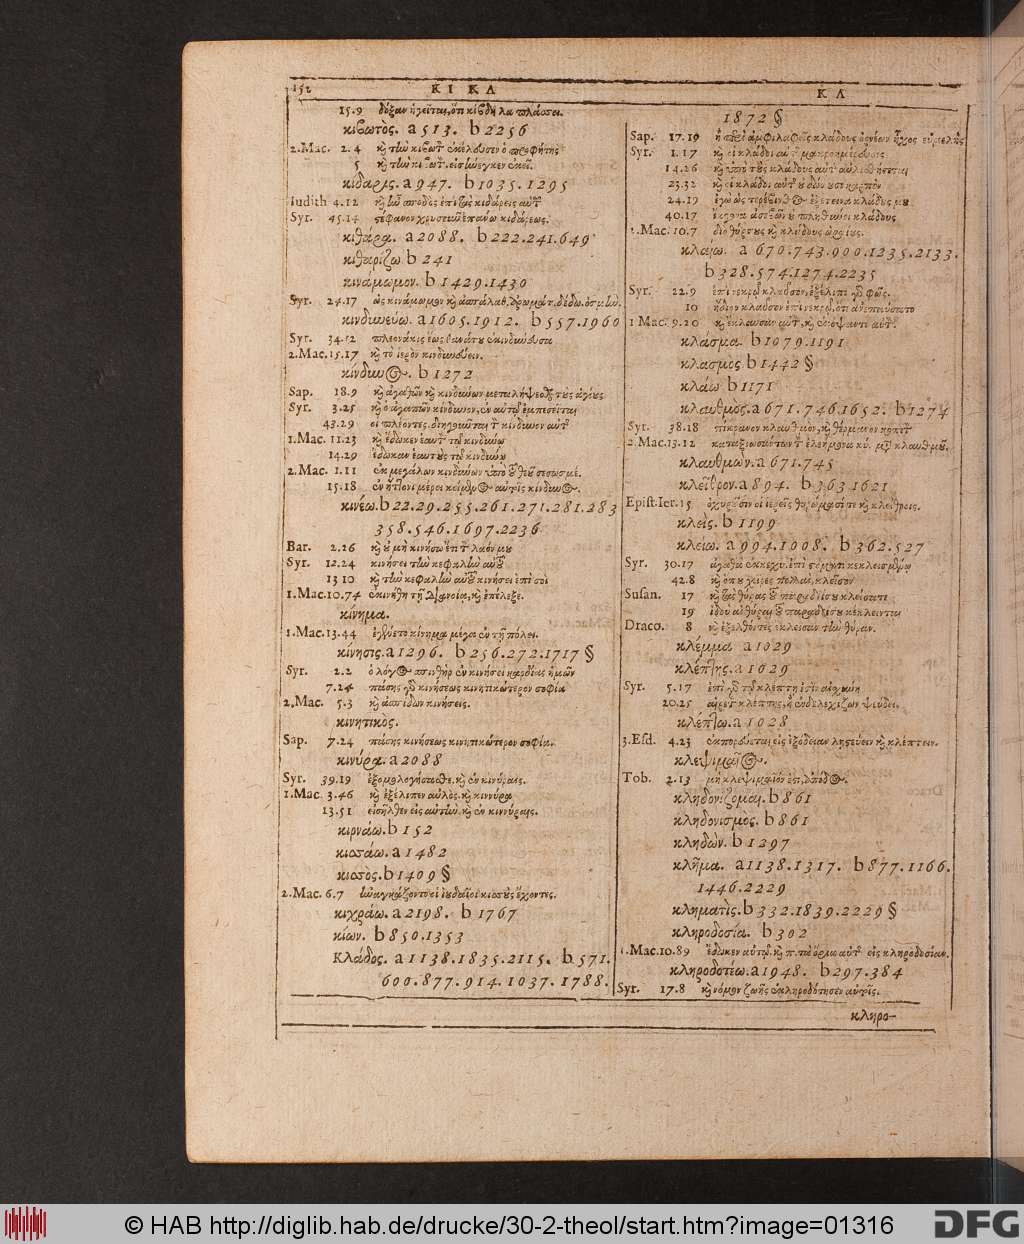 152 ΚΙ ΚΛ
15.9 δόξαν ἡγεῖται, ὅτι κίβδηλα πλάσσει.
κιβωτὸς. a 513. b 2256
2.Mac. 2.4 καὶ τὴν κιβωτ. ἐκέλευσεν ὁ προφήτης
5 καὶ τὴν κιβωτ. εἰσήνεγκεν ἐκεῖ.
κίδαρις. a 947. b 1035.1295
Iudith 4.12
Syr. 45.14 στέφανον χρυσοῦν ἐπάνω κιδάρεως.
κιθάρα. a 2088. b 222.241.649
κιθαρίζω b 241
κινάμωμον. b 1429.1430
Syr. 24.17 ὡς κινάμωμον καὶ ἀσπάλαθ.
κινδυνεύω. a 1605.1912. b 557.1960
Syr. 34.12 πλεονάκις ἕως θανάτου ἐκινδύνευσα
2.Mac.15.17 καὶ τὸ ἱερὸν κινδυνεύειν.
κίνδυνος. b 1272
Sap. 18.9 καὶ ἀγαθῶν καὶ κινδύνων μεταλήψεσθ. τοὺς ἁγίους
Syr. 3.25 καὶ ὁ ἀγαπῶν κίνδυνον, ἐν αὐτῷ ἐμπεσεῖται
43.29 οἱ πλέοντες. διηγοῦνται τ κίνδυνον αὐτ
1.Mac. 11.23 καὶ ἔδωκεν ἑαυτ τῷ κινδύνῳ
14.29 ἔδωκαν ἑαυτοὺς τῷ κινδύνῳ
2.Mac. 1.11 ἐκ μεγάλων κινδύνων ὑπὸ τοῦ θεοῦ σεσωσμέ.
15.18
κινέω. b 22.29.255.261.271.281.283
358.546.1697.2236
Bar. 2.26 καὶ οὐ μὴ κινήσω ἔτι τ λαόν μου
Syr. 12.24 κινήσει τὴν κεφαλὴν αὐτοῦ
13 10 καὶ τὴν κεφαλὴν αὐτοῦ κινήσει ἐπὶ σοὶ
1.Mac.10.74 ἐκινήθη τῇ διανοίᾳ, καὶ ἐπέλεξε.
κίνημα.
1.Mac.13.44 ἐγένετο κίνημα μέγα ἐν τῇ πόλει.
κίνησις. a 1296. b 256.272.1717 §
Syr. 2.2 ὁ λόγος σπινθὴρ ἐν κινήσει καρδίας ἡμῶν
7.24 πάσης γὸ κινήσεως κινητικώτερον σοφία
2.Mac. 5.3 καὶ ἀσπίδων κινήσεις.
κινητικὸς.
Sap. 7.24 πάσης κινήσεως κινητικώτερον σοφία.
κινύρα. a 2088
Syr. 39.19 ἐξομολογήσασθε, καὶ ἐν κινύραις.
1.Mac. 3.46 καὶ ἐξέλιπεν αὐλὸς, καὶ κινύρα
13.51 εἰσῆλθεν εἰς αὐτὴν καὶ ἐν κινύραις.
κιρνάω. b 152
κισσάω. a 1482
κισσὸς. b 1409 §
2.Mac. 6.7 ἠναγκάζοντο οἱ ἰουδαῖοι κισσοὺς ἔχοντες.
κιχράω. a 2198. b 1767
κίων. b 850.1353
Κλάδος. a 1138.1835.2115. b 571.
600.877.914.1037.1788.
ΚΛ
1872 §
Sap. 17.19 ἢ περὶ ἀμφιλαφεῖς κλάδους ὀρνέων ἦχος εὐμελὴς
Syr. 1.17 καὶ οἱ κλάδοι αὐτ μακροημέρευσις
14.26 καὶ ὑπὸ τοὺς κλάδους αὐτ αὐλισθήσεται
23.32 καὶ οἱ κλάδοι αὐτ οὐ δώσουσι καρπὸν
24.19 ἐγὼ ὡς τερέβινθος ἐξέτεινα κλάδους μου
40.17 ἔκγονα ἀσεβῶν οὐ πληθύνει κλάδους
2.Mac. 10.7 διὸ θύρσους καὶ κλάδους ὡραίους.
κλαίω. a 670.743.900.1235.2133.
b 328.574.1274.2235
Syr. 22.9 ἐπὶ νεκρῷ κλαῦσον, ἐξέλιπε γὸ φῶς.
10 ἥδιον κλαῦσον ἐπὶ νεκρῷ, ὅτι ἀνεπαύσατο
1 Mac. 9.20 καὶ ἔκλαυσαν αὐτ, καὶ ἐκόψαντο αὐτ
κλάσμα. b 1079.1191
κλασμος b 1442 §
κλάω b 1171
κλαυθμὸς. a 671.746.1652. b 1274
Syr. 38.18 πίκρανον κλαυθμὸν, καὶ θέρμανον κοπετ
2.Mac.13.12
κλαυθμών. a 671.745
κλεῖθρον. a 894. b 363.1621
Epist.Ier. 15 ὀχυροῦσιν οἱ ἱερεῖς θυρώμασί τε καὶ κλείθροις.
κλεὶς. b 1199
κλείω. a 994.1008. b 362.527
Syr. 30.17 ἀγαθὰ ἐκκεχυ. ἐπὶ στόματι κεκλεισμένῳ
42.8 καὶ ὅπου χεῖρες πολλαὶ, κλεῖσον
Susan. 17 καὶ τὰς θύρας τοῦ παραδείσου κλείσατε
19 ἰδοὺ αἱ θύραι τοῦ παραδείσου κέκλεινται
Draco. 8 καὶ ἐξελθόντες ἔκλεισαν τὴν θύραν.
κλέμμα a 1029
κλέπτης. a 1629
Syr. 5.17 ἐπὶ γὸ τῷ κλέπτῃ ἐστὶν αἰσχύνη
20.25 αἱρετ κλέπτης, ἢ ἐνδελεχίζων ψεύδει.
κλέπτω. a 1028
3.Esd. 4.23 ἐκπορεύεται εἰς ἐξόδειαν λῃστεύειν καὶ κλέπτειν.
κλεψιμαῖος.
Tob. 2.13
κληδονίζομαι. b 861
κληδονισμος. b 861
κληδών. b 1297
κλῆμα. a 1138.1317. b 877.1166.
1446.2229
κληματὶς. b 332.1839.2229 §
κληροδοσία. b 302
1.Mac.10.89 ἔδωκεν αὐτῷ εἰς κληροδοσίαν.
κληροδοτέω. a 1948. b 297.384
Syr. 17.8 καὶ νόμον ζωῆς ἐκληροδότησεν αὐτοῖς.
κληρο-
© HAB http://diglib.hab.de/drucke/30-2-theol/start.htm?image=01316
DFG